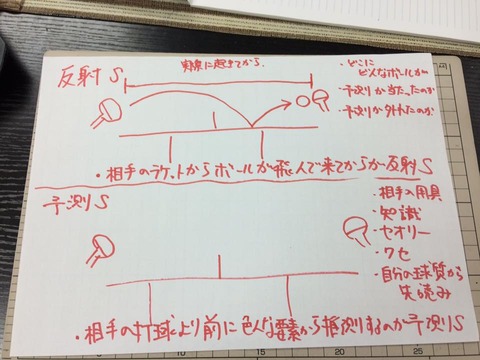 反射S
実際に起きてから
・どこに
どんなボールが
・予測が当たったのか
・予測が外れたのか
・相手のラケットからボールが飛んで来てからが反射S
予測S
・相手の用具
・知識
・セオリー
・クセ
・自分の球質から
先読み
・相手の打球より前に色んな要素から推測するのが予測S